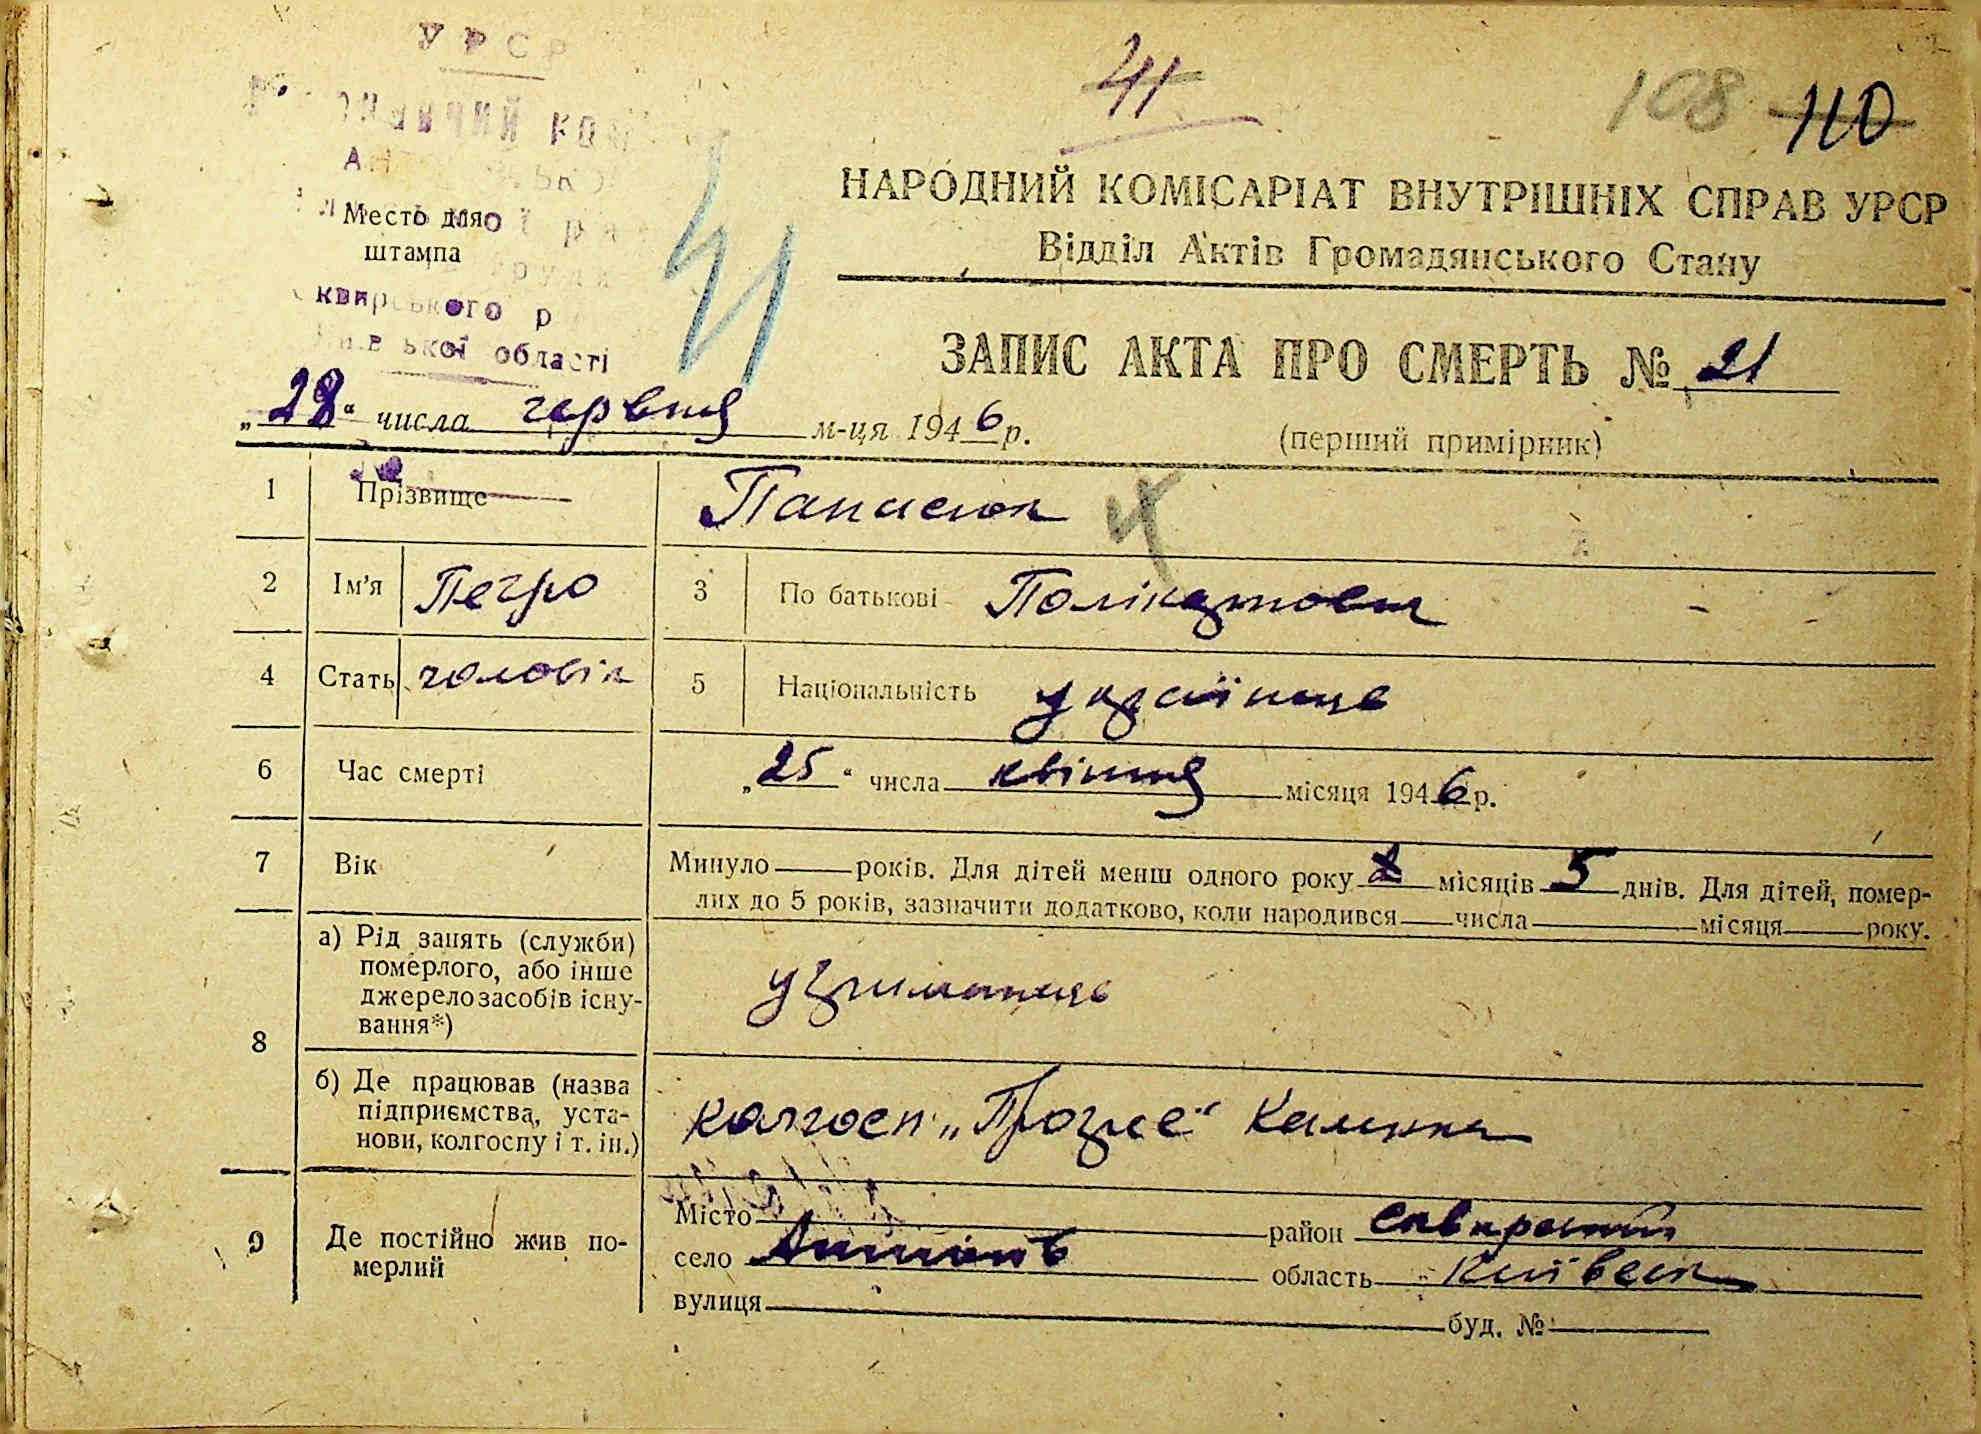 УРСР
41
108 110
41
Место для
штампа
Київської області
НАРОДНИЙ КОМІСАРІАТ ВНУТРІШНІХ СПРАВ УРСР
Відділ Актів Громадянського Стану
ЗАПИС АКТА ПРО СМЕРТЬ № 21
„28“ числа червня м-ця 1946 р.
(перший примірник)
1 Прізвище
2 Ім'я Петро 3 По батькові
4 Стать чоловік 5 Національність українець
6 Час смерті „25“ числа квітня місяця 1946 р.
7 Вік Минуло — років. Для дітей менш одного року місяців 5 днів. Для дітей, помер-
лих до 5 років, зазначити додатково, коли народився — числа — місяця — року.
8 а) Рід занять (служби)
померлого, або інше
джерело засобів існу-
вання*)
утриманець
б) Де працював (назва
підприємства, уста-
нови, колгоспу і т. ін.)
колгосп
9 Де постійно жив по-
мерлий
Місто — район Сквирський
село Антонів область Київськ
вулиця — буд. № —